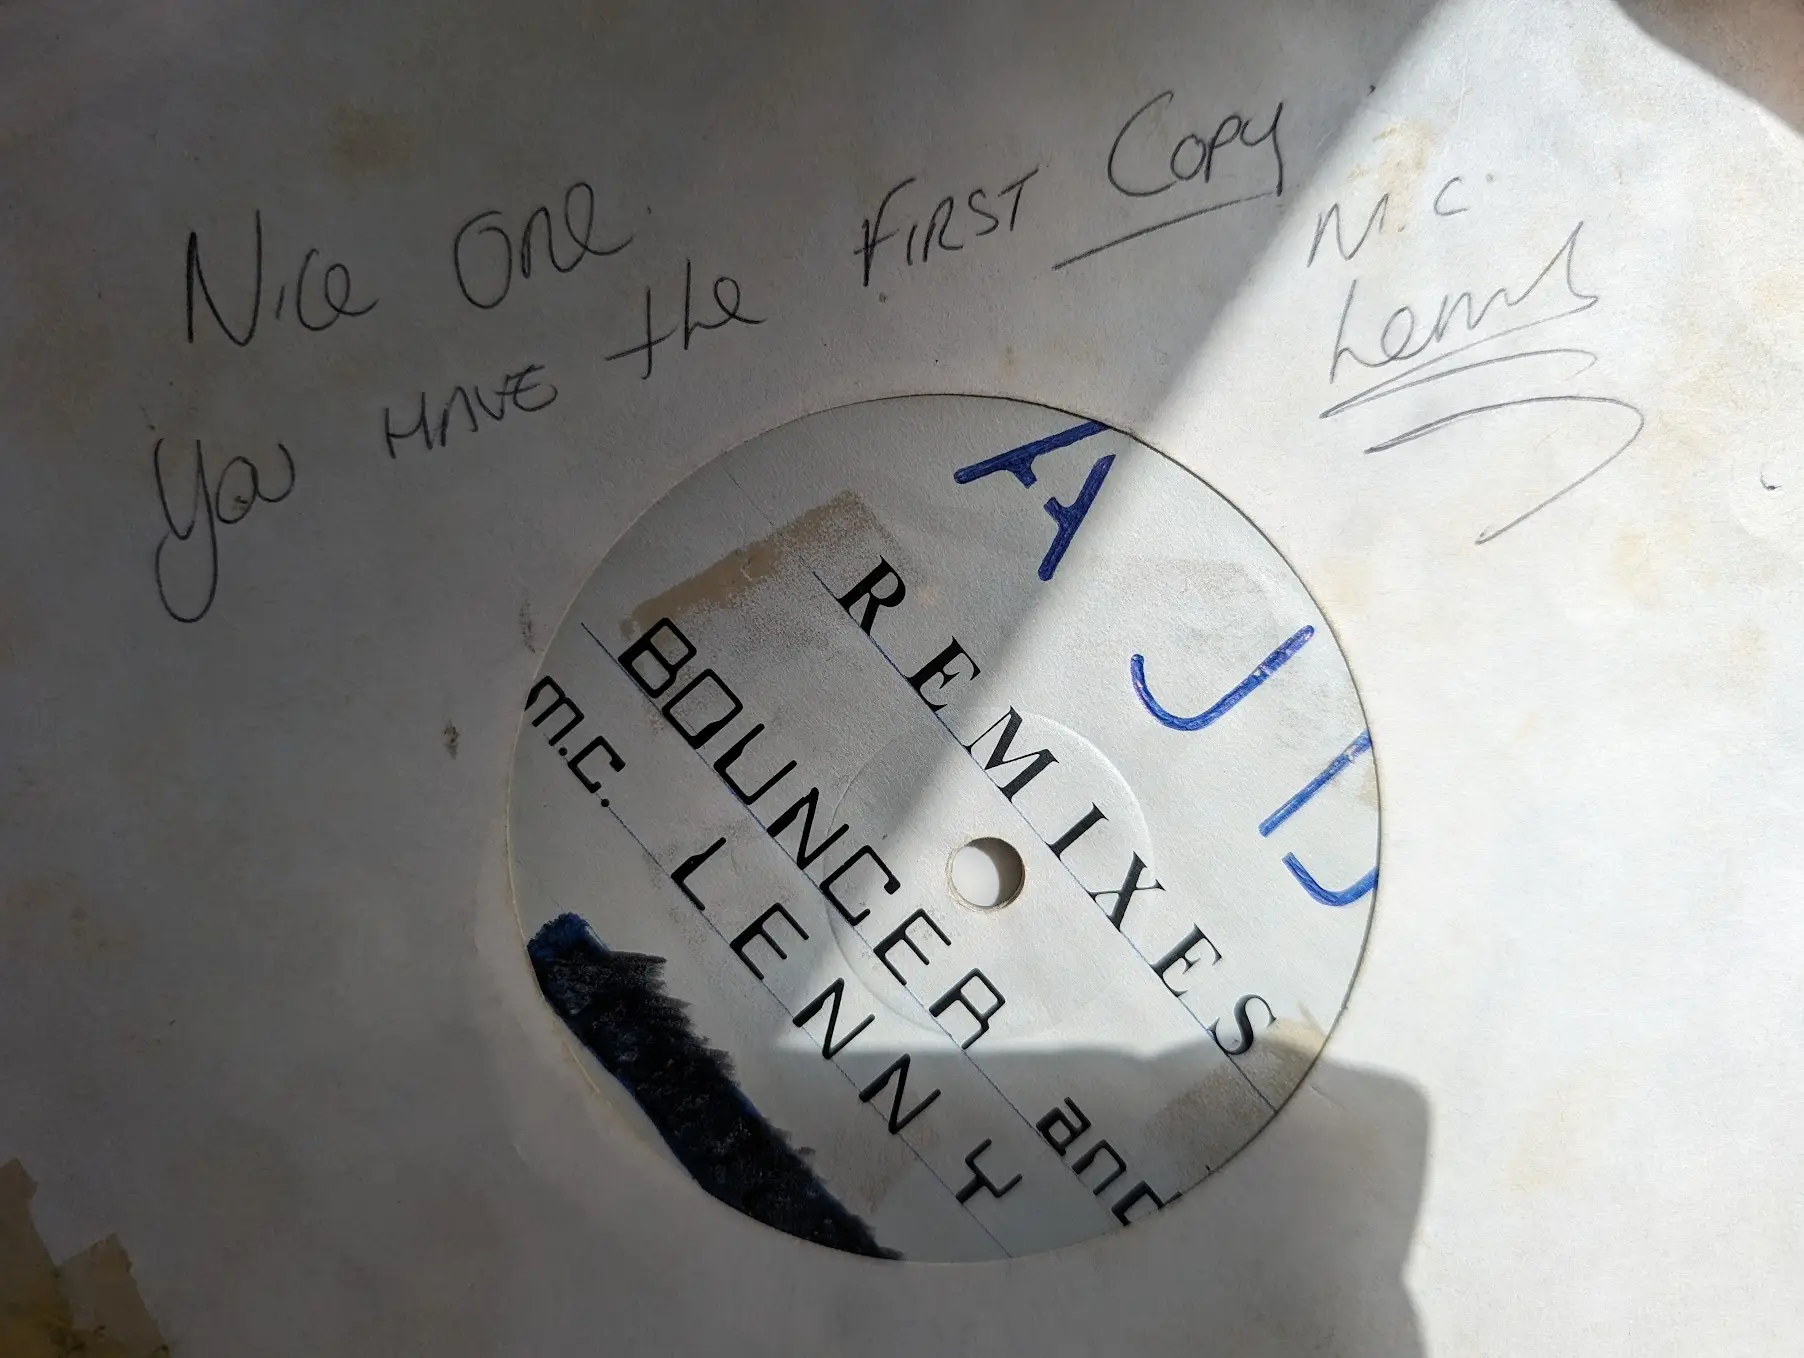 Nice One.
You HAVE the FIRST Copy
M.C.
Lenny
A
J
REMIXES
BOUNCER and
m.c. LENNY